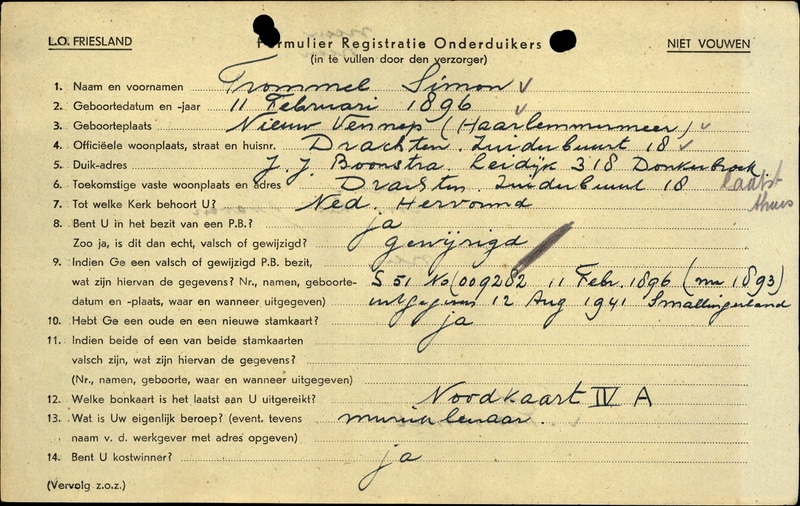 L.O. FRIESLAND
Formulier Registratie Onderduikers
NIET VOUWEN
(in te vullen door den verzorger)
1. Naam en voornamen Trommel Simon
2. Geboortedatum en -jaar 11 Februari 1896
3. Geboorteplaats Nieuw Vennep (Haarlemmermeer)
4. Officiëele woonplaats, straat en huisnr. Drachten. Zuiderbuurt 18
5. Duik-adres J. J. Boonstra. Leidijk 318 Donkerbroek
6. Toekomstige vaste woonplaats en adres Drachten. Zuiderbuurt 18
laatst thuis
7. Tot welke Kerk behoort U? Ned. Hervormd
8. Bent U in het bezit van een P.B.? ja
Zoo ja, is dit dan echt, valsch of gewijzigd? gewijzigd
9. Indien Ge een valsch of gewijzigd P.B. bezit,
wat zijn hiervan de gegevens? Nr., namen, geboorte- S 51 No (009282 11 Febr. 1896 (nu 1893)
datum en -plaats, waar en wanneer uitgegeven) uitgegeven 12 Aug 1941 Smallingerland
10. Hebt Ge een oude en een nieuwe stamkaart? ja
11. Indien beide of een van beide stamkaarten
valsch zijn, wat zijn hiervan de gegevens?
(Nr., namen, geboorte, waar en wanneer uitgegeven)
12. Welke bonkaart is het laatst aan U uitgereikt? Noodkaart IV A
13. Wat is Uw eigenlijk beroep? (event. tevens
naam v. d. werkgever met adres opgeven)
14. Bent U kostwinner? ja
(Vervolg z.o.z.)